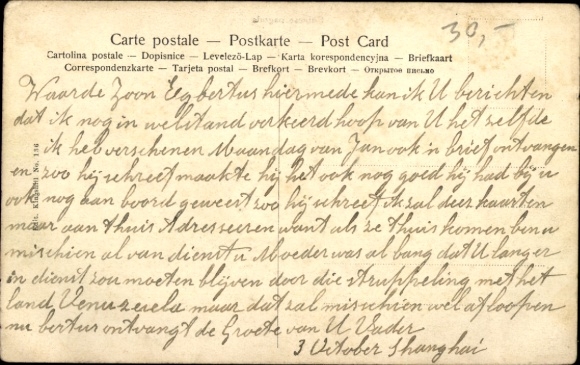 30,-
Carte postale — Postkarte — Post Card
Cartolina postale — Dopisnice — Levelező-Lap — Karta korespondencyjna — Briefkaart
Correspondenzkarte — Tarjeta postal — Brefkort — Brevkort — Открытое письмо
Waarde Zoon Egbertus hiermede kan ik U berichten
dat ik nog in welstand verkeerd hoop van U het zelfde
ik heb verschenen Maandag van Jan ook 'n brief ontvangen
en zoo hij schreef maakte hij het ook nog goed hij had bij u
ook nog aan boord geweest zoo hij schreef ik zal deze kaarten
maar aan thuis Adresseeren want als ze thuis komen ben u
mischien al van dienst u Moeder was al bang dat U langer
in dienst zou moeten blijven door die struppeling met het
land Venuzeuela maar dat zal misschien wel afloopen
nu bertus ontvangt de Groete van U Vader
3 October Shanghai
No. 136